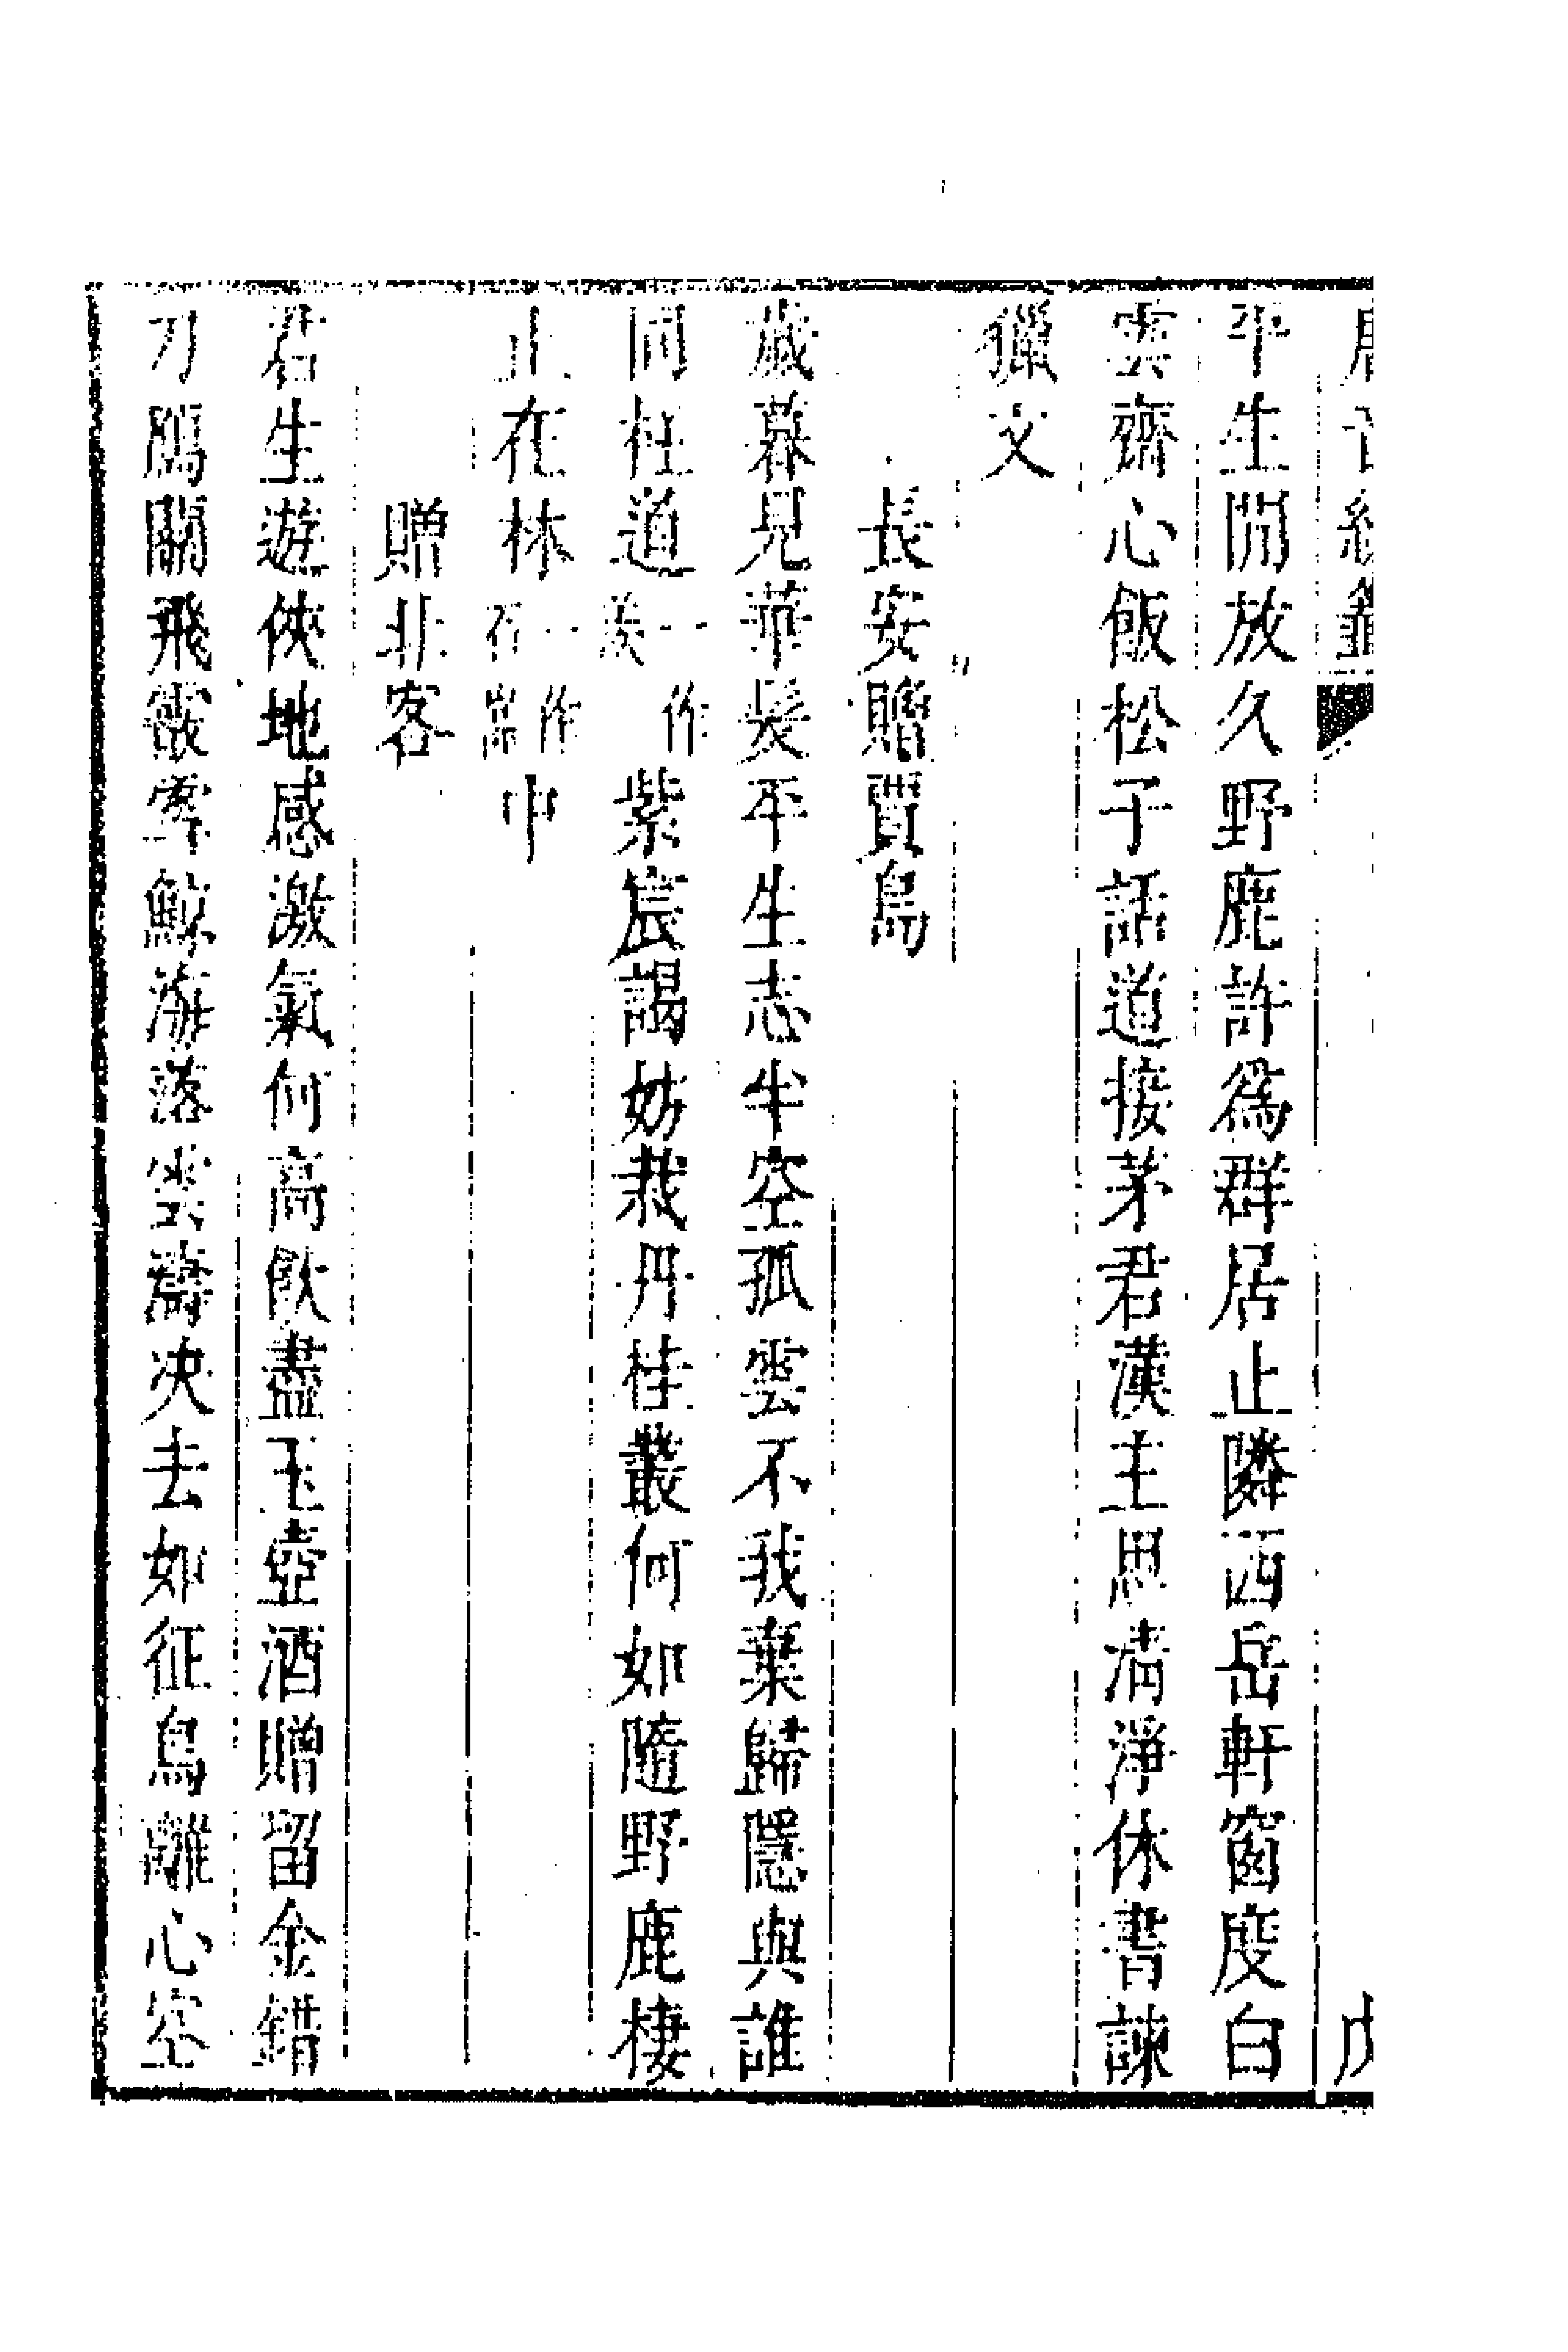 平生閒放久野鹿許爲群居止隣西岳軒窗度白
雲齋心飯松子話道接茅君漢主思清淨休書諫
獵文
長安贈賈島
歲暮見華髮平生志半空孤雲不我棄歸隱與誰
同枉道一作紫宸謁妨栽丹桂叢何如隨野鹿棲
止在林一作石嵒中
贈北客
君生遊俠地感激氣何高飲盡玉壺酒贈留金錯
刀鴈關飛霰雪鯨海落雲濤决去如征鳥離心空